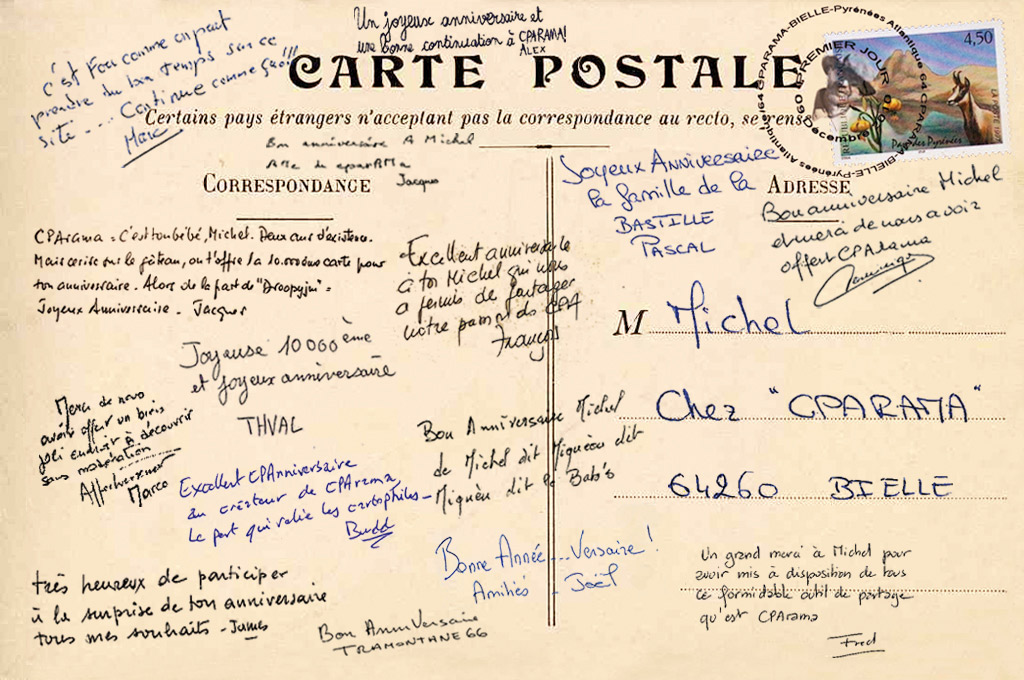 Un joyeux anniversaire et
une bonne continuation à CPARAMA!
ALEX
C'est fou comme on peut
prendre du bon temps sur ce
site... Continue comme ça!!!
Marc
CARTE POSTALE
Certains pays étrangers n'acceptent pas la correspondance au recto, se rense
CPARAMA-BIELLE-Pyrénées Atlantique 64
PREMIER JOUR
Décembre
4,50
Pays des Pyrénées
Bon anniversaire A Michel
de cparama
Jacques
CORRESPONDANCE
CPArama = C'est ton bébé, Michel. Deux ans d'existence.
Mais cerise sur le gâteau, on t'offre la 10.000ème carte pour
ton anniversaire. Alors de la part de "Droopyjn" =
Joyeux Anniversaire - Jacques
Excellent anniversaire
à toi Michel qui nous
a permis de partager
notre passion des CPA
François
Joyeuse 10000ème
et joyeux anniversaire
THVAL
Merci de nous
avoir offert un bien
joli endroit à découvrir
sans modération
Affectueusement
Marco
Excellent CPAnniversaire
au créateur de CPArama,
le port qui relie les cartophiles -
Budd
Bon Anniversaire Michel
de Michel dit Miquèou dit
Miquèu dit le Bab's
Bonne Année...Versaire !
Amitiés - Joël
très heureux de participer
à la surprise de ton anniversaire
tous mes souhaits - James
Bon AnniVersaire
TRAMONTANE66
Joyeux Anniversaire
la famille de la
BASTILLE
PASCAL
ADRESSE
Bon anniversaire Michel
et merci de nous avoir
offert CPArama
Dominique
M Michel
Chez "CPARAMA"
64260 BIELLE
Un grand merci à Michel pour
avoir mis à disposition de tous
ce formidable outil de partage
qu'est CPArama
Fred